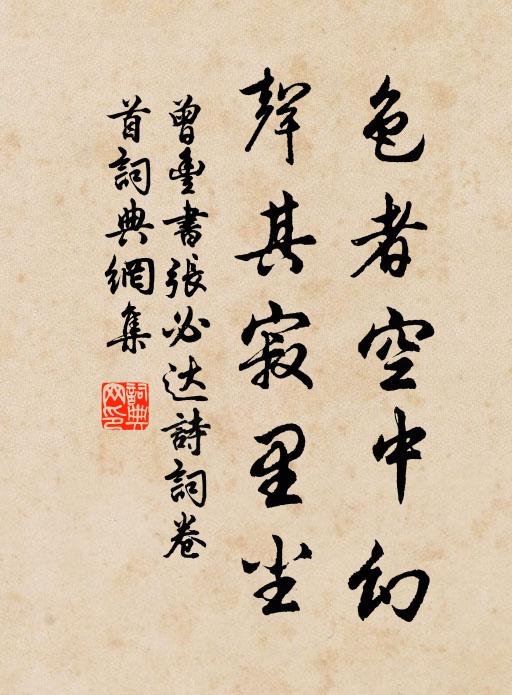 色者空中幻
聲其寂里尘
曾豐書張必达詩詞卷
首詞典網集
詞典
网印